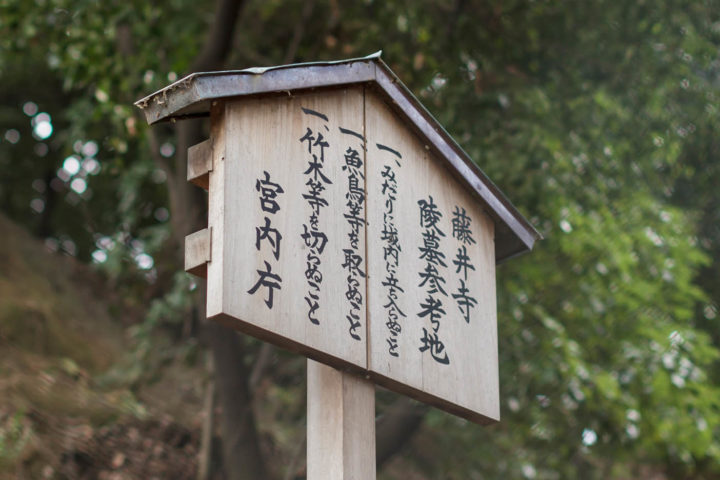 藤井寺
陵墓参考地
一、みだりに域内に立ち入らぬこと
一、魚鳥等を取らぬこと
一、竹木等を切らぬこと
宮内庁